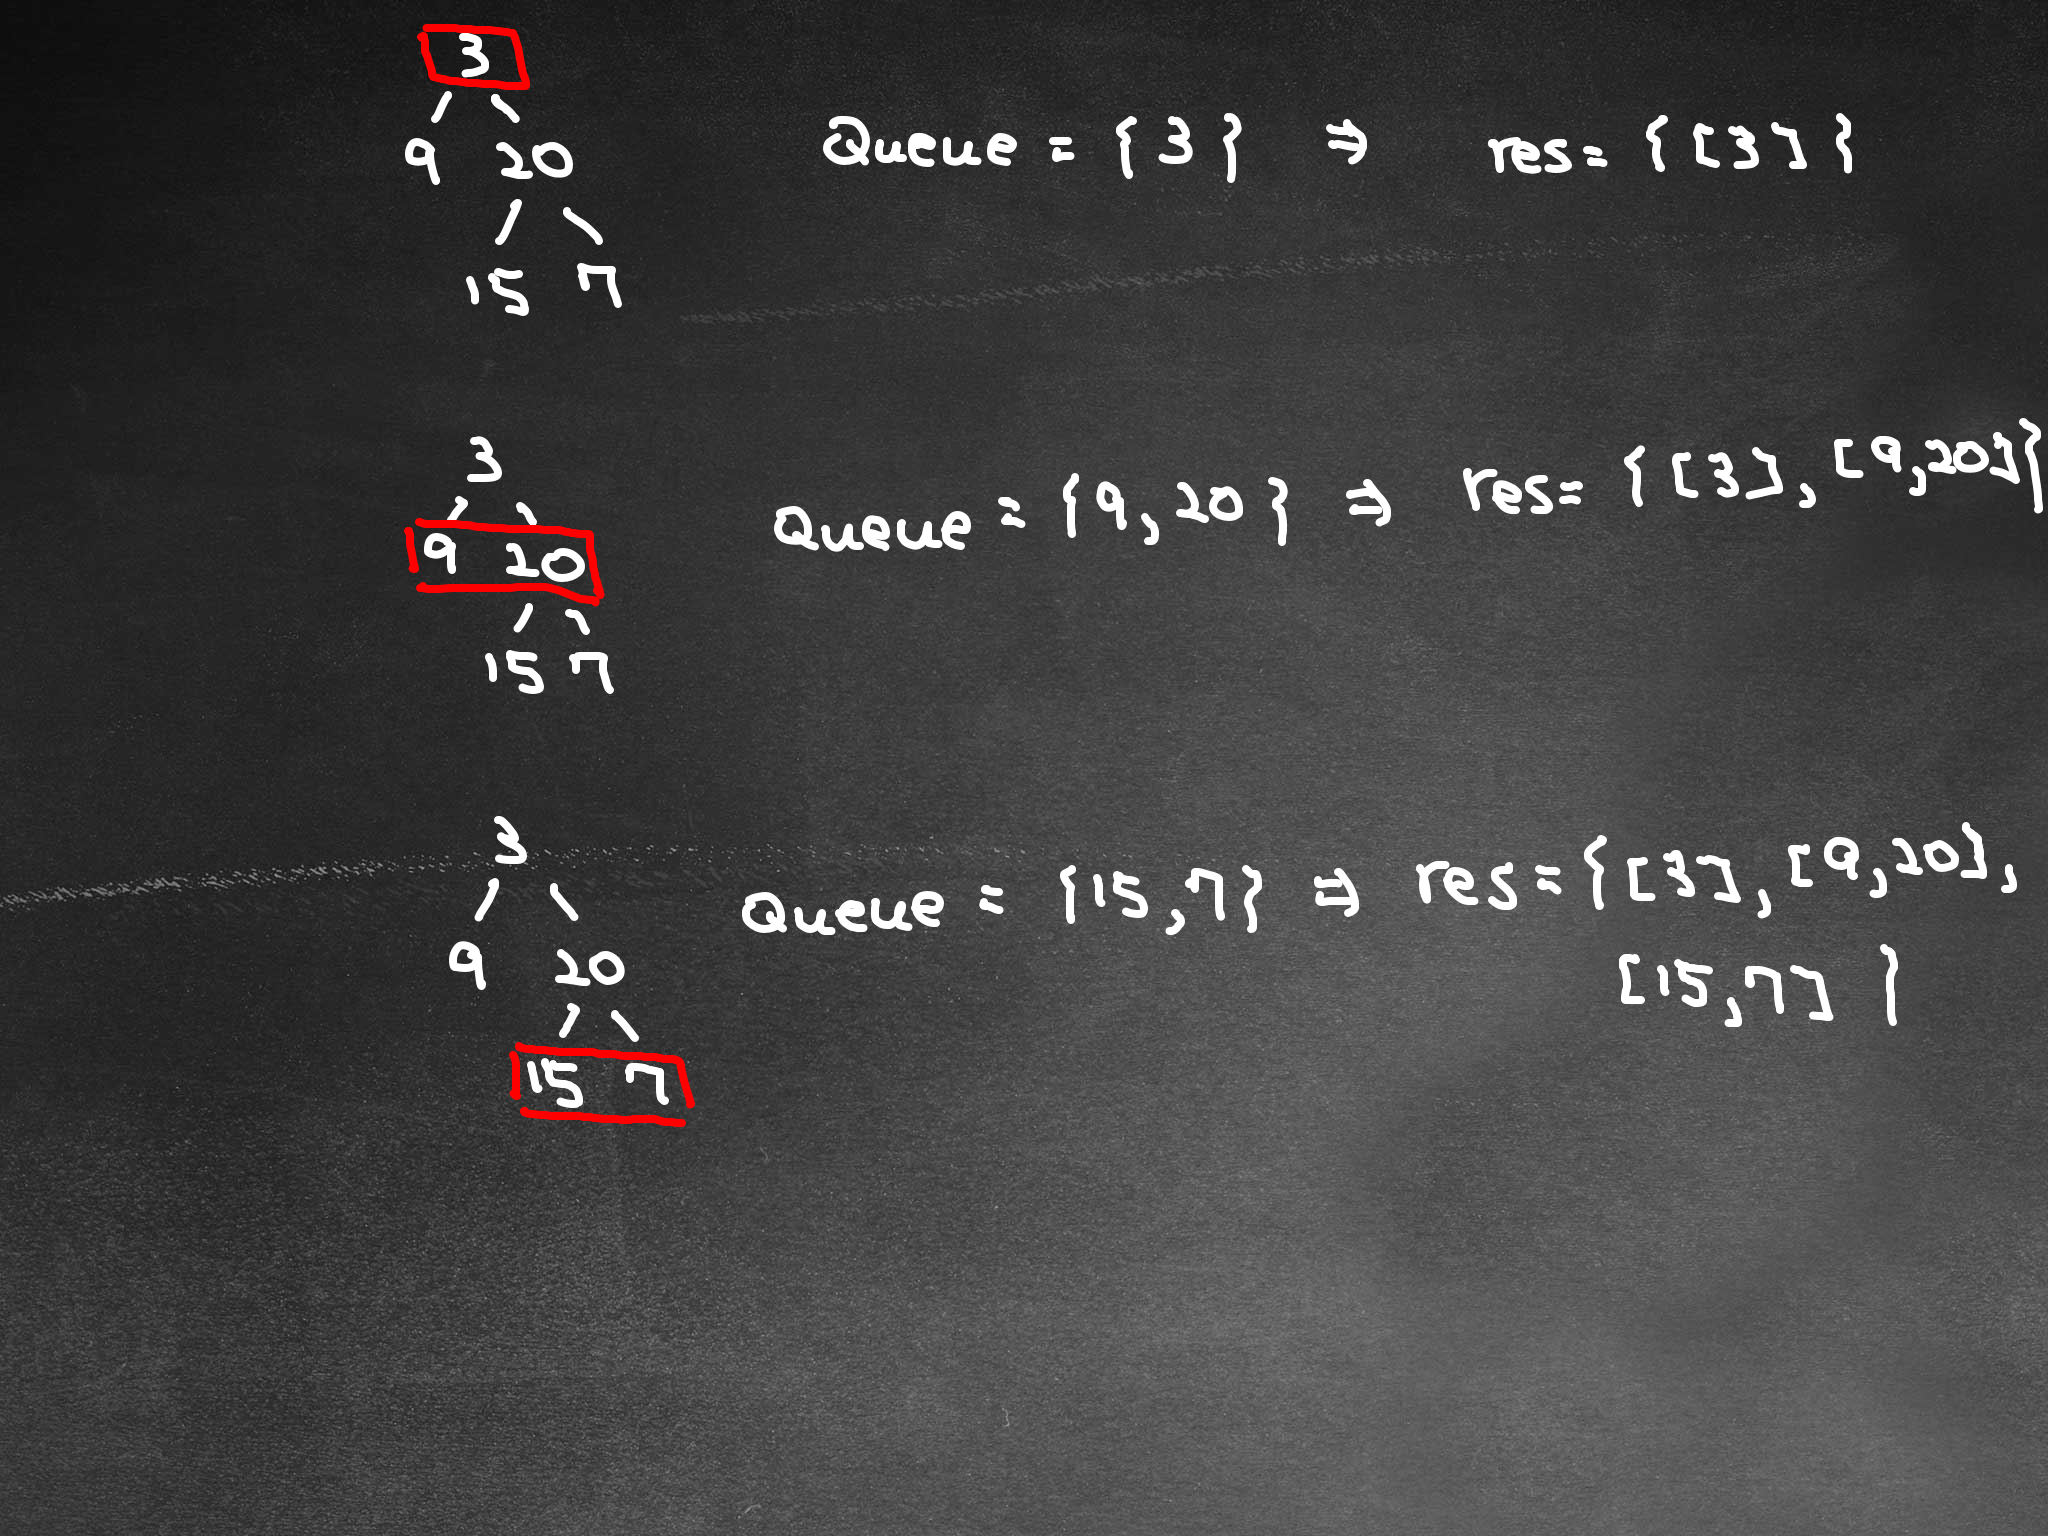 3
9 20
15 7
Queue = { 3 } ⇒ res= { [3] }
3
9 20
15 7
Queue = {9, 20 } ⇒ res= { [3], [9,20]}
3
9 20
15 7
Queue = {15,7} ⇒ res={[3], [9,20],
[15,7] }